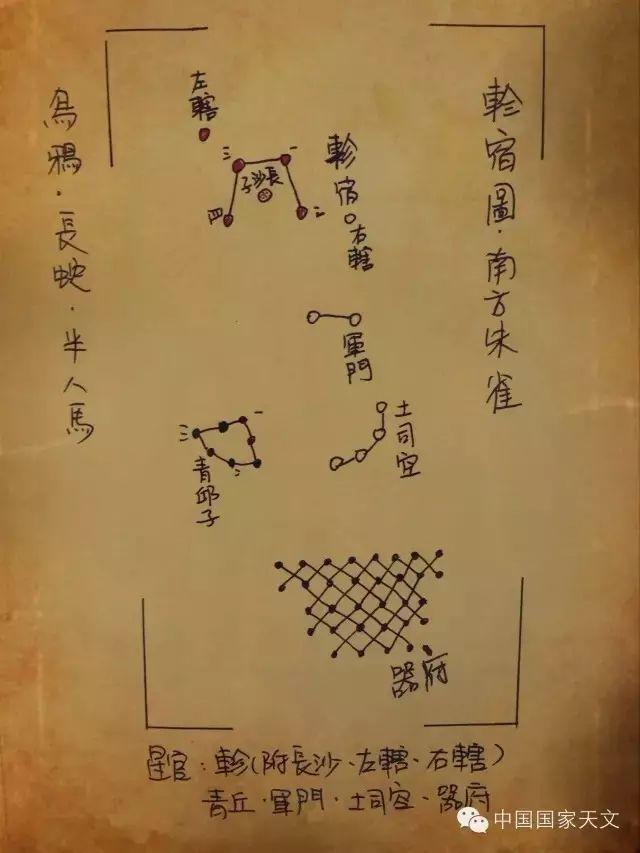 軫宿圖·南方朱雀
烏鴉·長蛇·半人馬
左轄
三
一
長沙子
四
二
軫宿
右轄
軍門
土司空
一
三
二
青邱子
器府
星官：軫(附長沙、左轄、右轄)
青丘·軍門·土司空·器府
中国国家天文